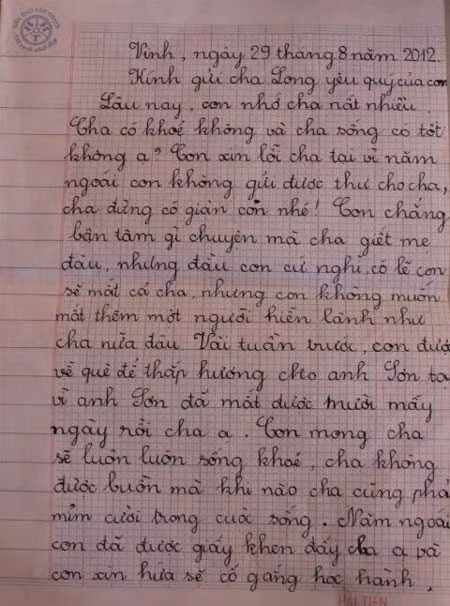 Vinh, ngày 29 tháng 8 năm 2012.
Kính gửi cha Long yêu quý của con
Lâu nay, con nhớ cha nất nhiều
Cha có khoẻ không và cha sống có tốt
không ạ? Con xin lỗi cha tại vì năm
ngoái con không gửi được thư cho cha,
cha đừng có giận con nhé! Con chẳng
bận tâm gì chuyện mà cha giết mẹ
đâu, nhưng đầu con cứ nghĩ, có lẽ con
sẽ mất cả cha, nhưng con không muốn
mất thêm một người hiền lành như
cha nữa đâu. Vài tuần trước, con được
về quê để thắp hương cho anh Sơn tại
vì anh Sơn đã mất được mười mấy
ngày rồi cha ạ. Con mong cha
sẽ luôn luôn sống khoẻ, cha không
được buồn mà khi nào cha cũng phải
mỉm cười trong cuộc sống. Năm ngoái
con đã được giấy khen đấy cha ạ và
con xin hứa sẽ cố gắng học hành.
HẢI TIẾN